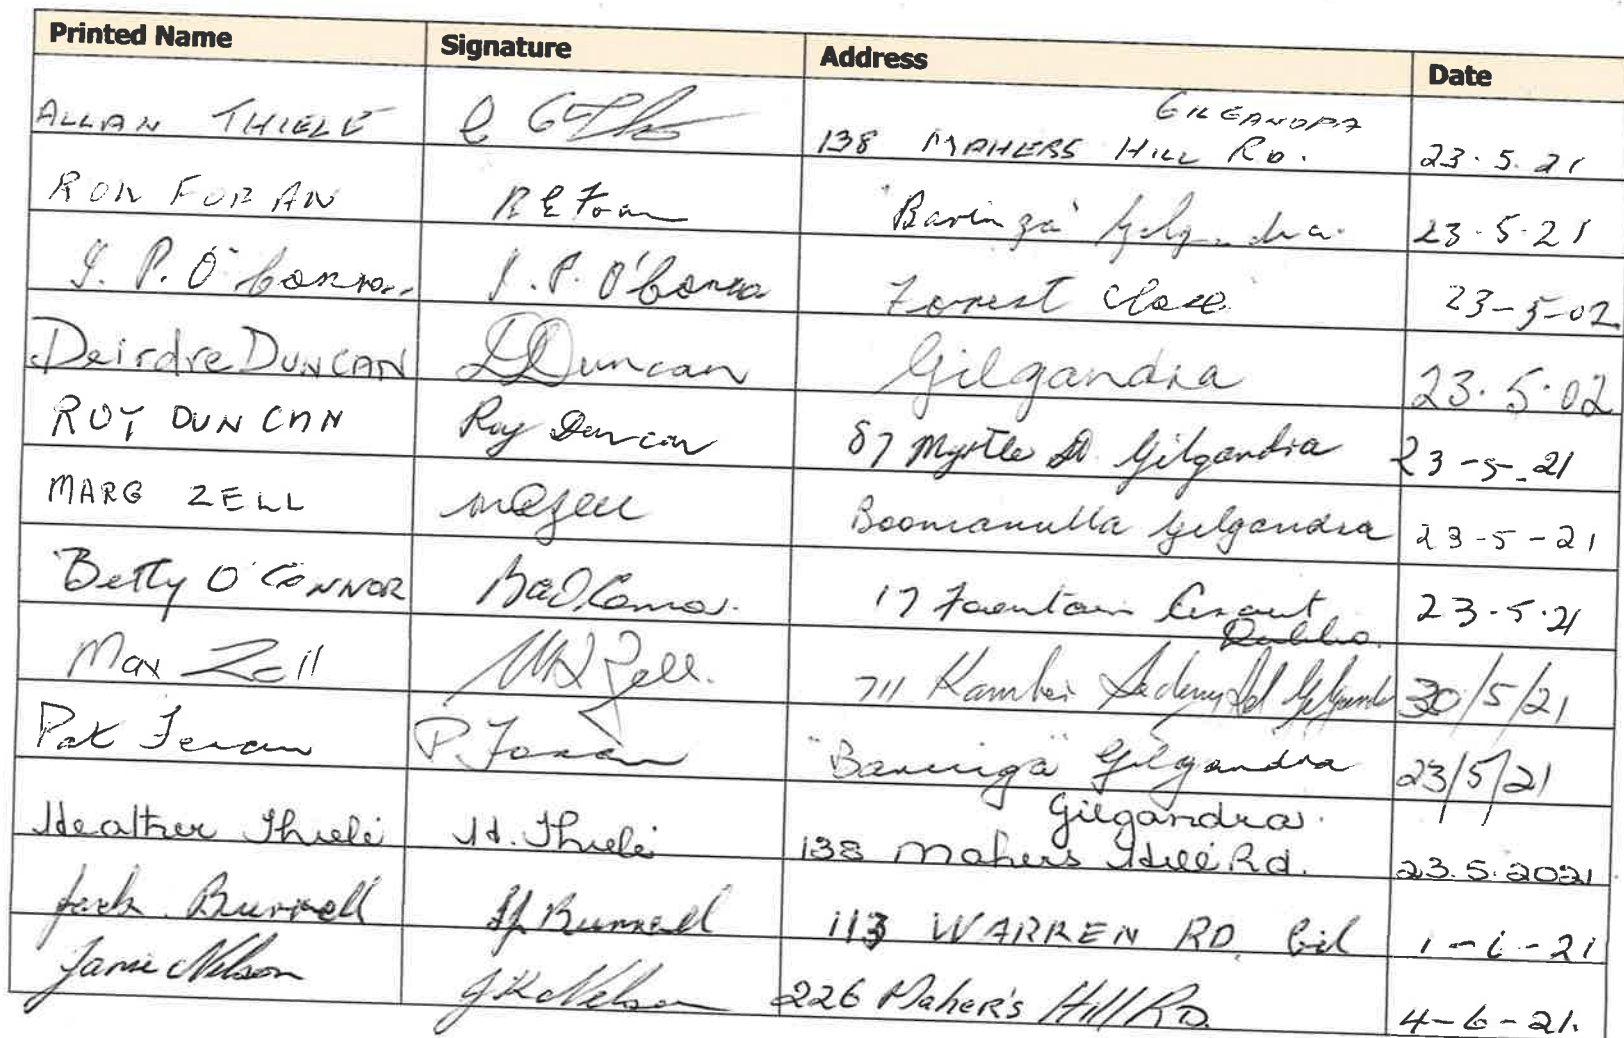 Printed Name Signature Address Date
ALLAN THIELE GILGANDRA
138 MAHERS HILL RD. 23.5.21
RON FORAN R E Foran "Baringa" Gilgandra. 23-5-21
J. P. O'Connor J. P. O'Connor Forest Close 23-5-02
Deirdre DUNCAN D Duncan Gilgandra 23.5.02
ROY DUNCAN Roy Duncan 87 Myrtle St. Gilgandra 23-5-21
MARG ZELL M Zell Boomanulla Gilgandra 23-5-21
Betty O'CONNOR O'Connor. 17 Fountain 23-5-21
Dubbo.
Max Zell Zell. 711 Gilgandra 30/5/21
Pat Foran P. Foran "Baringa" Gilgandra 23/5/21
Gilgandra.
Heather Thiele H. Thiele 138 Mahers Hill Rd. 23.5.2021
Jack Burrell Burrell 113 WARREN RD, Gil 1-6-21
Jamie Nelson J K Nelson 226 Maher's Hill RD. 4-6-21.